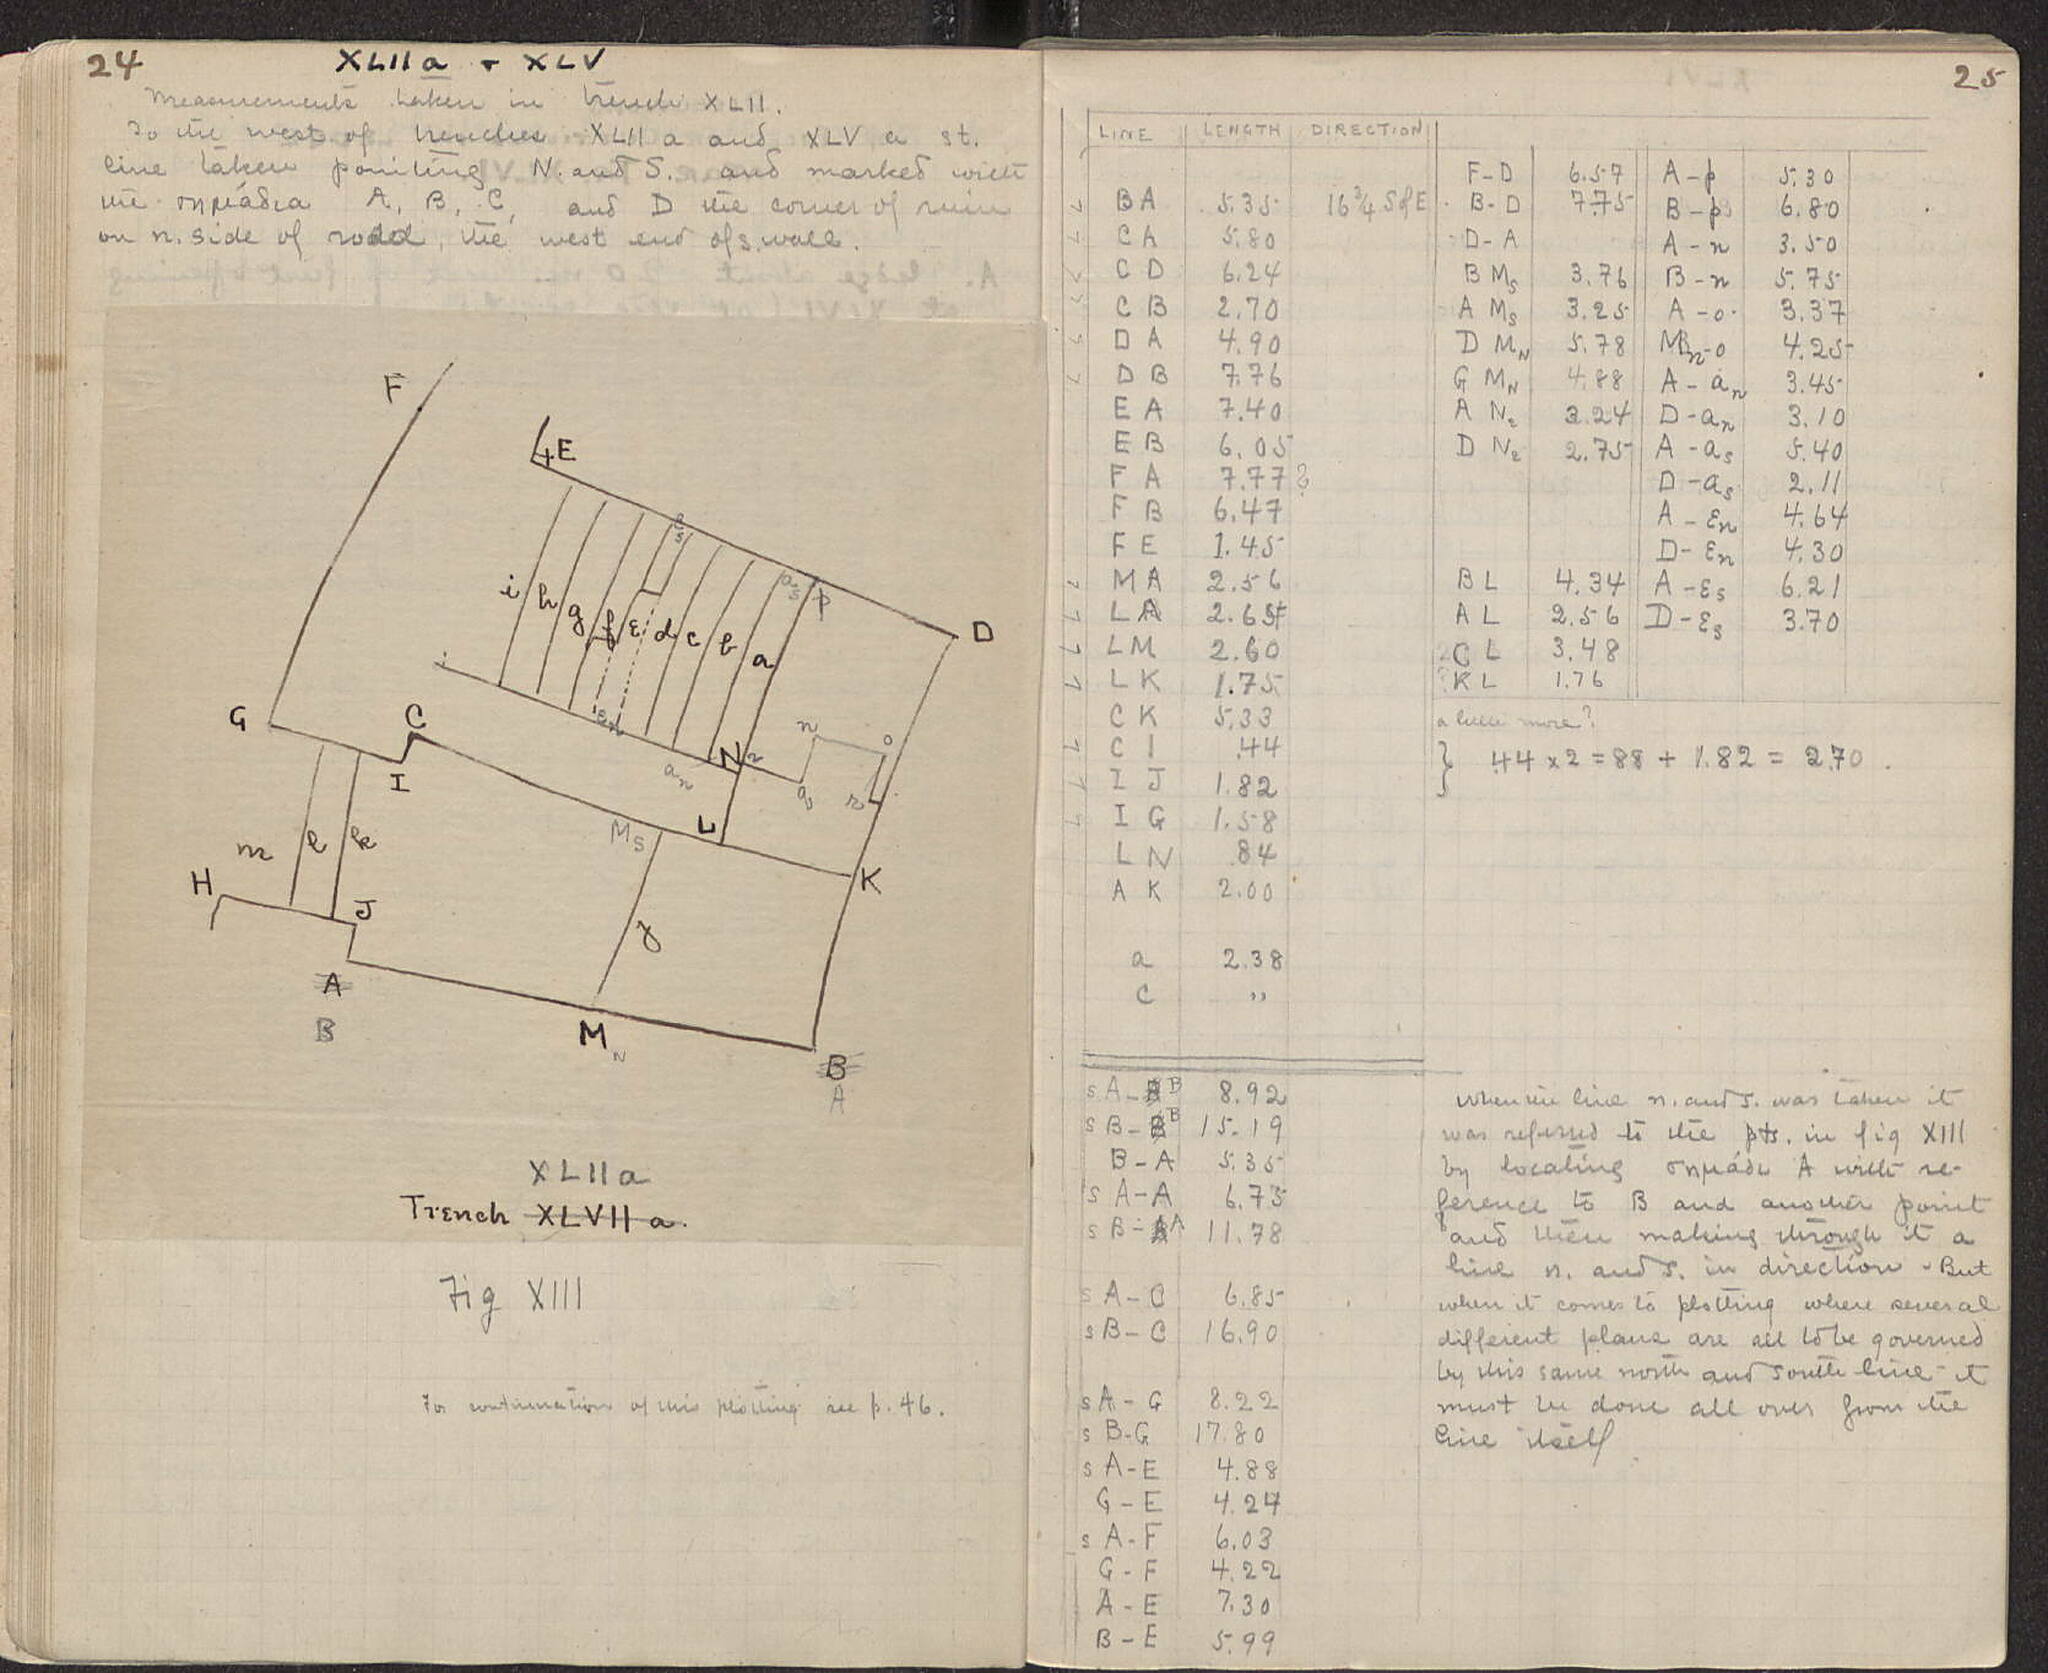 24
XLIIa + XLV
Measurements taken in trench XLII.
To the west of trenches XLII a and XLV a st.
line taken pointing N. and S. and marked with
the σημάδια A, B, C, and D the corner of ruin
on n. side of road, the west end of s. wall.
F
E
D
i h g f ε d c b a
s
as
p
G
C
I
εn
an
N2
n
o
q
r
Ms
L
K
m l k
H
J
y
A
B
M N
B
A
XLIIa
Trench XLVII a.
Fig XIII
For continuation of this plotting see p. 46.
25
LINE LENGTH DIRECTION
BA 5.35 16 3/4 S of E
CA 5.80
CD 6.24
CB 2.70
DA 4.90
DB 7.76
EA 7.40
EB 6.05
FA 7.77?
FB 6.47
FE 1.45
MA 2.56
LA
LM 2.60
LK 1.75
CK 5.33
CI .44
IJ 1.82
IG 1.58
LN .84
AK 2.00
a 2.38
c "
F-D 6.57
B-D 7.75
D-A
B Ms 3.76
A Ms 3.25
D MN 5.78
G MN 4.88
A N2 3.24
D N2 2.75
BL 4.34
AL 2.56
CL 3.48
KL 1.76
A-p 5.30
B-p 6.80
A-n 3.50
B-n 5.75
A-o 3.37
Mn-o 4.25
A-an 3.45
D-an 3.10
A-as 5.40
D-as 2.11
A-εn 4.64
D-εn 4.30
A-εs 6.21
D-εs 3.70
a little more?
} .44 x 2 = 88 + 1.82 = 2.70.
s A-B 8.92
s B-B 15.19
B-A 5.35
s A-A 6.75
s B-A 11.78
s A-C 6.85
s B-C 16.90
s A-G 8.22
s B-G 17.80
s A-E 4.88
G-E 4.24
s A-F 6.03
G-F 4.22
A-E 7.30
B-E 5.99
When the line n. and s. was taken it
was referred to the pts. in fig XIII
by locating σημάδι A with re-
ference to B and another point
and then making through it a
line n. and s. in direction. But
when it comes to plotting where several
different plans are all to be governed
by this same north and south line it
must be done all over from the
line itself